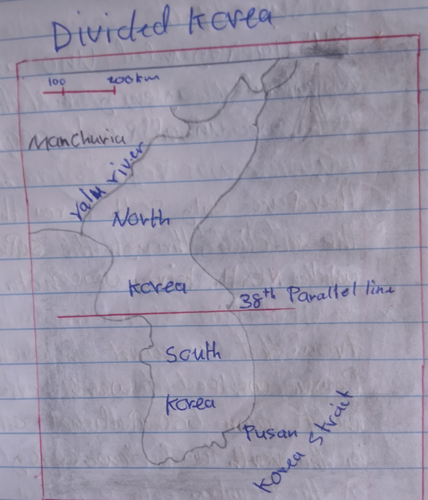 Divided Korea
100 200km
Manchuria
Yalu river
North
Korea
38th Parallel line
South
Korea
Pusan
Korea Strait